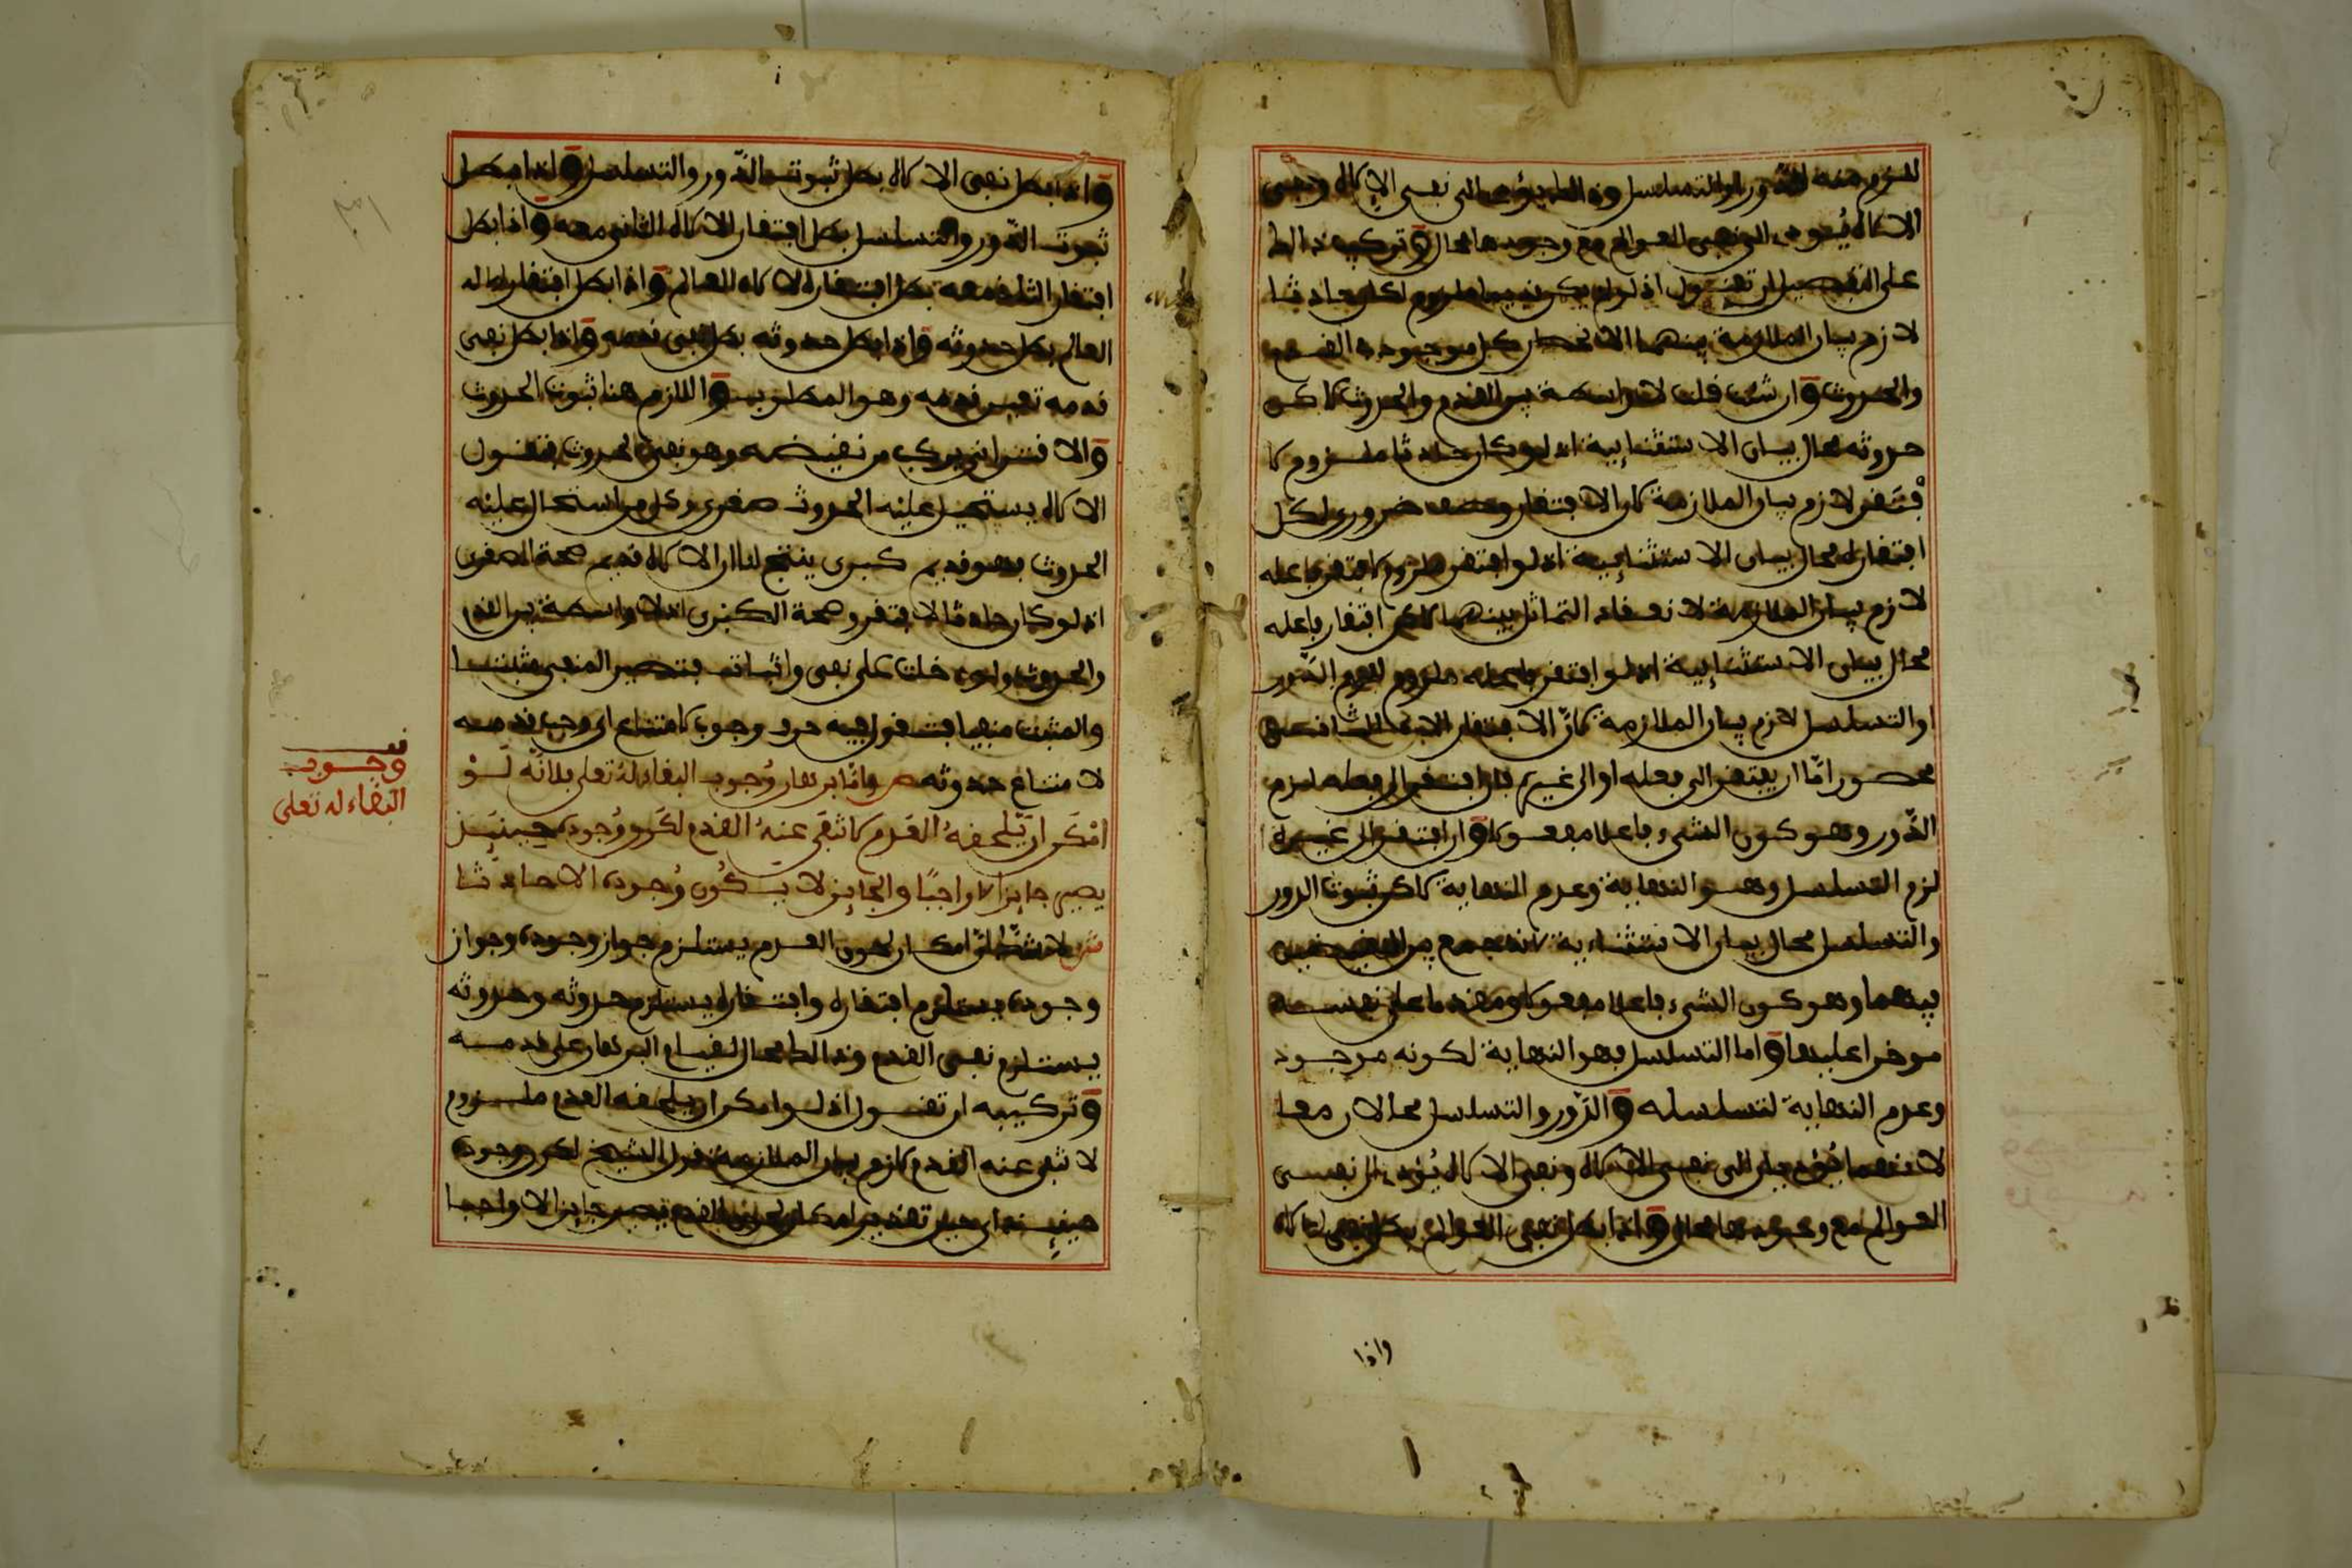 لزم منه الدور او التسلسل وذالك يؤدي الى نفي الاله ونفي
الاله يؤدي الى نفي العوالم مع وجودها محال وتركيبه ذالك
على التفصيل ان تقول اذ لو لم يكن قديما ملزوم لكان حادثا
لازم بيان الملازمة بينهما الانحصار كل موجود في القدم
والحدوث وان شئت قلت لا واسطة بين القدم والحدوث لاكن
حدوثه محال بيان الاستثنائية اذ لو كان حادثا ملزوم لا
فتقر لازم بيان الملازمة لان الافتقار وصف ضروري لكل
افتقاره محال بيان الاستثنائية اذ لو افتقر ملزوم لافتقر فاعله
لازم بيان الملازمة لانعقاد التماثل بينهما لاكن افتقار فاعله
محال بيان الاستثنائية اذ لو افتقر فاعله ملزوم لزم الدور
او التسلسل لازم بيان الملازمة لان الافتقار
محصور اما ان يفتقر الى فعله او الى غيره فان افتقر الى فعله لزم
الدور وهو كون الشيء فاعلا مفعولا وان افتقر الى غيره
لزم التسلسل وهو النهاية وعدم النهاية لاكن ثبوت الدور
والتسلسل محال بيان الاستثنائية لانه جمع بين النقيضين
بينهما وهو كون الشيء فاعلا مفعولا ومقدما على نفسه
موخرا عليها واما التسلسل فهو النهاية لكونه موجود
وعدم النهاية لتسلسله والدور والتسلسل محالان معا
لانهما يؤديان الى نفي الاله ونفي الاله يؤدي الى نفي
العوالم مع وجودها محال واذا بطل نفي العوالم بطل نفي الاله
واذا
واذا بطل نفي الاله بطل ثبوت الدور والتسلسل واذا بطل
ثبوت الدور والتسلسل بطل افتقار الاله الثاني معه واذا بطل
افتقار الثاني معه بطل افتقار الاله للعالم واذا بطل افتقار اله
العالم بطل حدوثه واذا بطل حدوثه بطل نفي قدمه واذا بطل نفي
قدمه تعين قدمه وهو المطلوب واللازم هنا ثبوت الحدوث
والاقتراني يركب من نقيضه وهو نفي الحدوث فتقول
الاله يستحيل عليه الحدوث صغرى وكل من استحال عليه
الحدوث فهو قديم كبرى ينتج لنا ان الاله قديم صحة الصغرى
اذ لو كان حادثا لافتقر وصحة الكبرى اذ لا واسطة بين القدم
والحدوث ولو دخلت على نفي واثبات فتصير المنفي مثبتا
والمثبت منفيا فتقول فيه حرف وجوب لامتناع اي وجب قدمه
لامتناع حدوثه ص واما برهان وجوب البقاء له تعلى فلانه لو
امكن ان يلحقه العدم لانتفى عنه القدم لكون وجوده حينئذ
يصير جايزا لا واجبا والجايز لا يكون وجوده الا حادثا
ش لا شك ان امكان لحوق العدم يستلزم جواز وجوده وجواز
وجوده يستلزم افتقاره وافتقاره يستلزم حدوثه وحدوثه
يستلزم نفي القدم وذالك محال لقيام البرهان على قدمه
وتركيبه ان تقول اذ لو امكن ان يلحقه العدم ملزوم
لانتفى عنه القدم لازم بيان الملازمة قول الشيخ لكون وجوده
حينئذ اي حين تقدير امكان لحوق العدم يصير جايزا لا واجبا
قف
وجوب
البقاء له تعلى